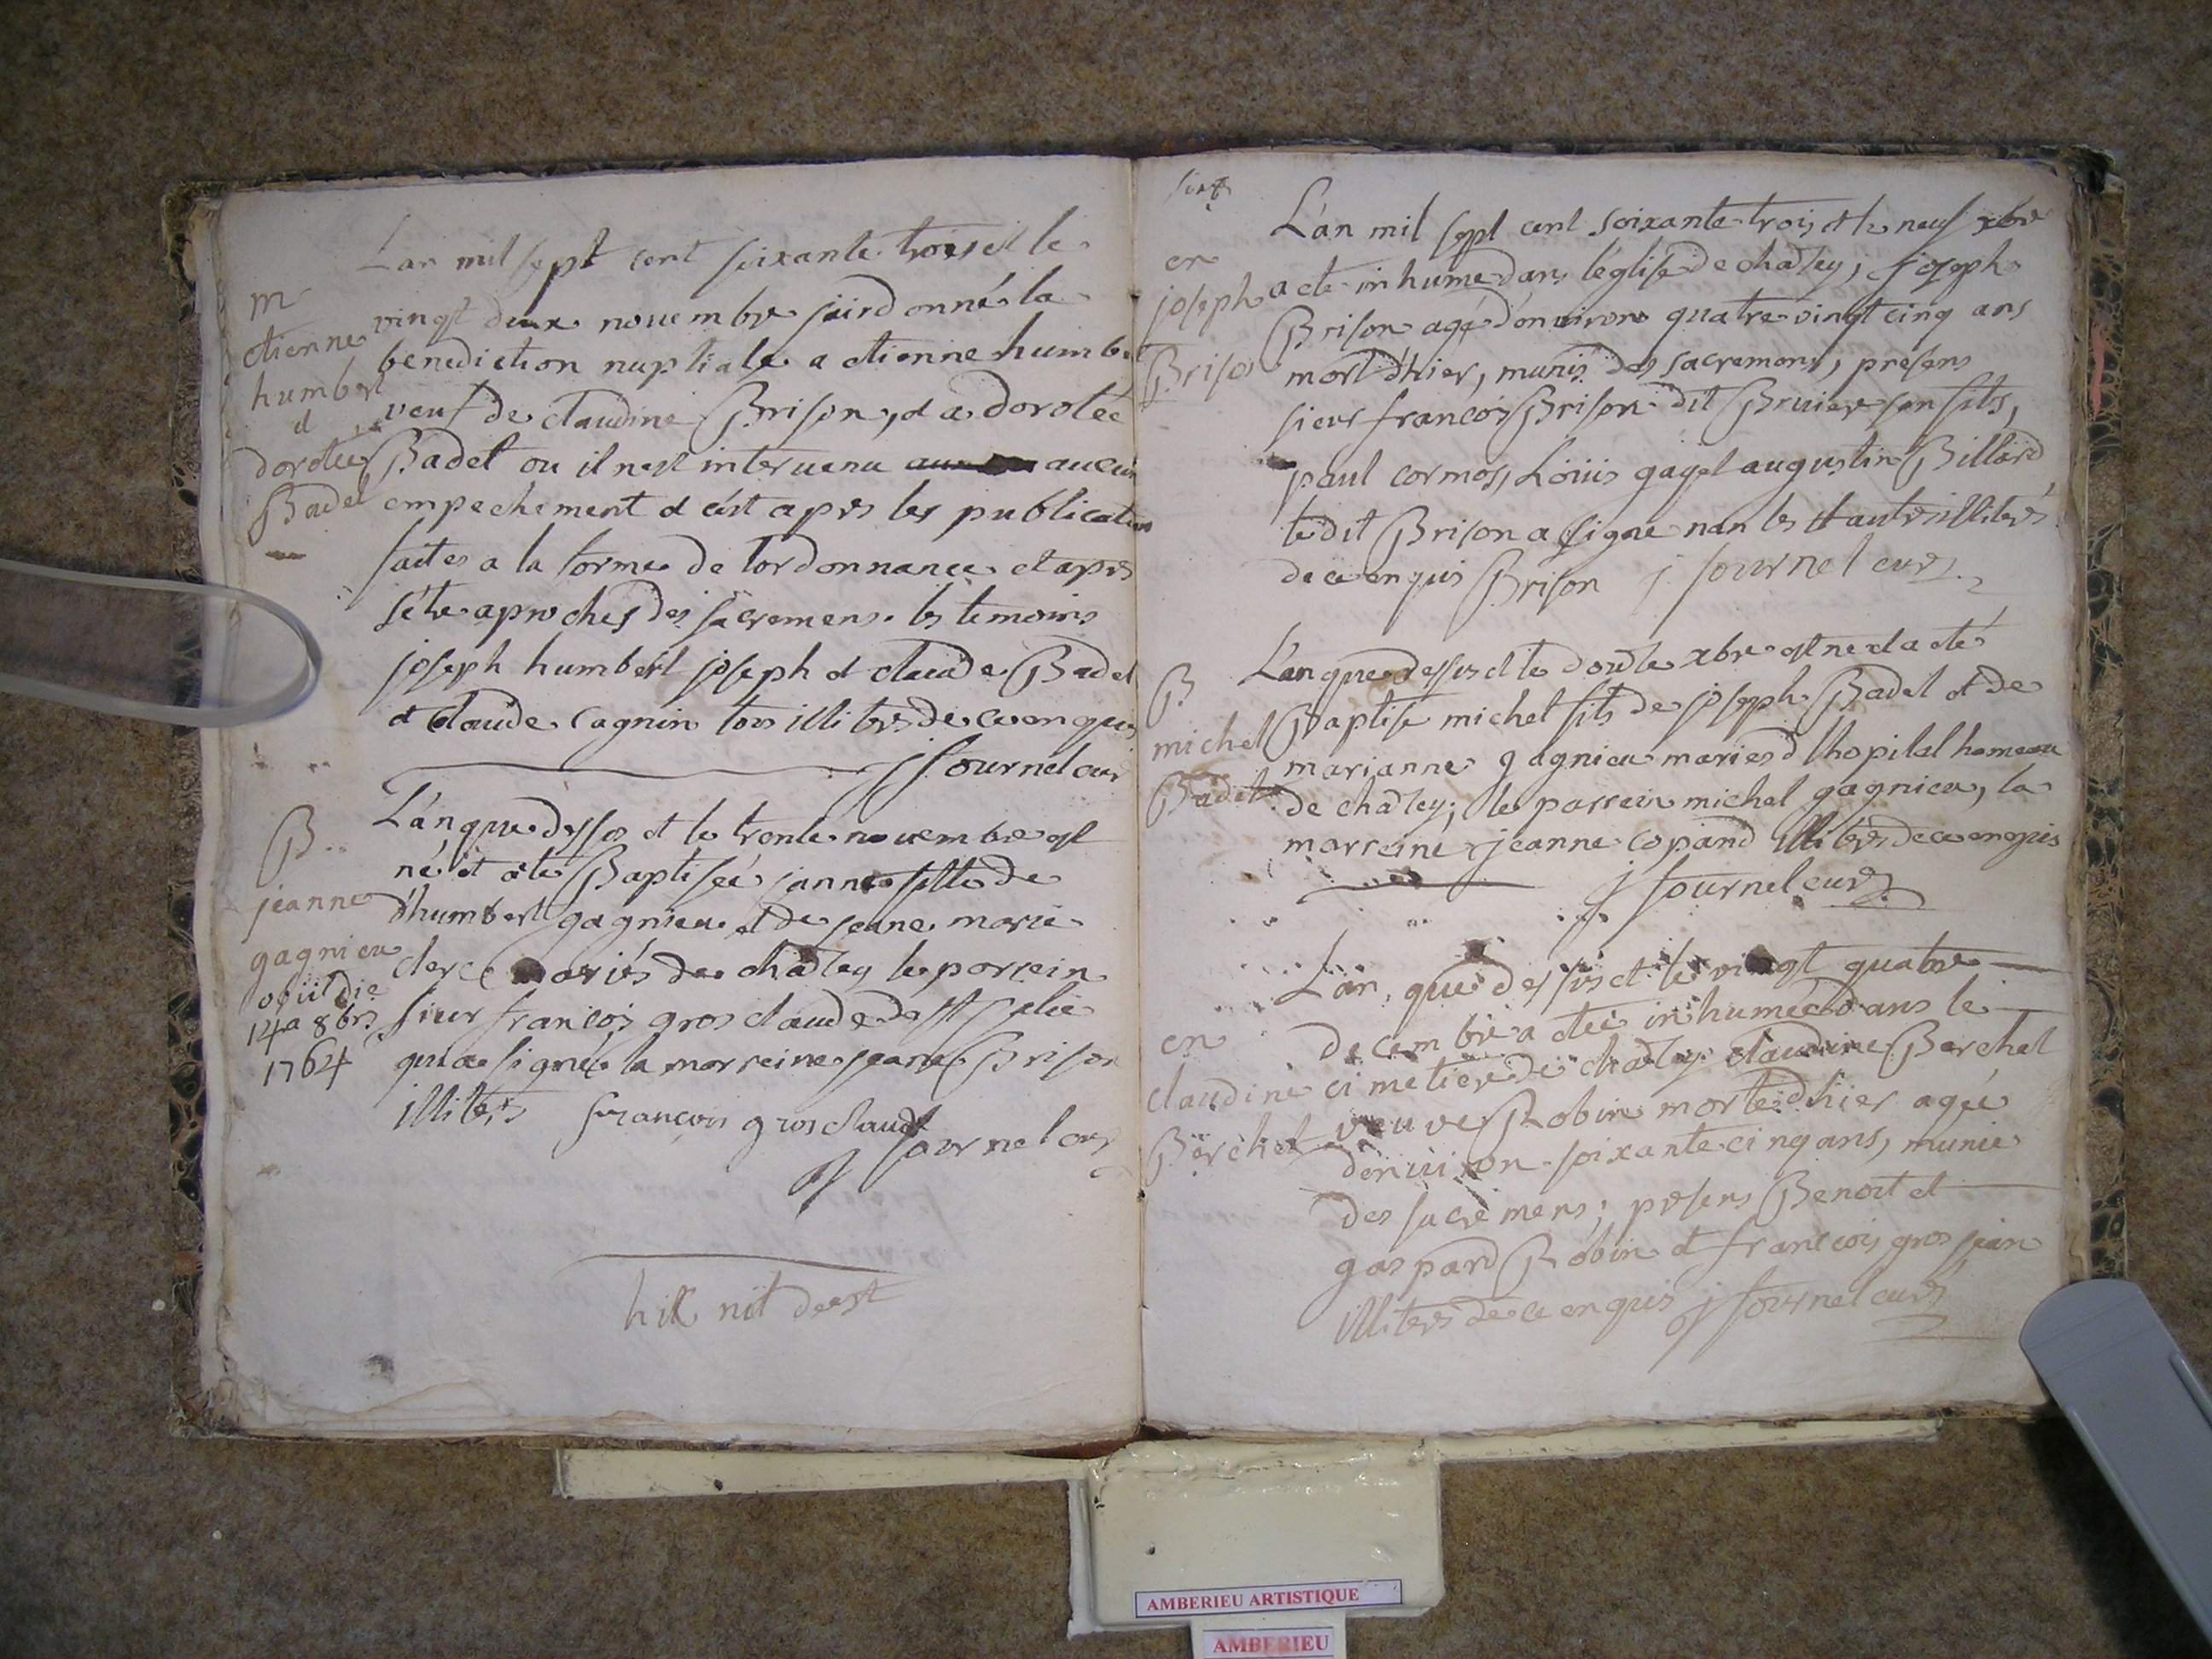 Lan mil sept cent soixante trois et le
m
etienne
humbert
et
dorotee
Badel
vingt deux novembre jai donné la
benediction nuptiale a etienne humbert
veuf de claudine Brison, et a dorotée
Badet ou il nest intervenu aucun
empechement et cest apres les publications
faites a la forme de lordonnance et apres
sétre aprochés des sacremens. les temoins
joseph humbert joseph et claude Badet
et claude cagnin tous illiteres de ce enquis
j fournel curé
B
jeanne
gagnieu
obiit die
14a 8bris
1764
L'an que dessus et le trente novembre est
né et a ete Baptiseé janne fille de
d'humbert gagnieu et de jeanne marie
clerc mariés de chatley le parrein
sieur françois gros claude de st
qui a signé, la marreine jeane Brison
illiteré françois gros claude
j fournel curé
hik nil deest
en
joseph
Brison
L'an mil sept cent soixante trois et le neuf xbre
a ete inhumé dans léglise de chatley, joseph
Brison agé d'environ quatre vingt cinq ans
mort d'hier, munis des sacremens, presens
sieur francois Brison dit Bruier son fils,
paul cormos, Loüis gayet augustin Billard
ledit Brison a signé nan les autres illiterés
de ce enquis Brison j fournel curé
B
michel
Badet
L'an que dessus et le douze xbre est ne et a eté
Baptise michel fils de joseph Badet et de
marianne gagnieu mariés d lhopital hameau
de chatley, le parrein michel gagnieu, la
marreine jeanne copand illiterés de ce enquis
j fournel curé
en
claudine
Berchet
L'an que dessus et le vingt quatre
decembre a eteé inhumeé dans le
cimetiere de chatley claudine Berchet
veuve Robin morte d'hier agée
denviron soixante cinq ans, munie
des sacremens; presens Benoit et
gaspard Robin et francois gros jean
illiterés de ce enquis j fournel curé
AMBERIEU ARTISTIQUE
AMBERIEU